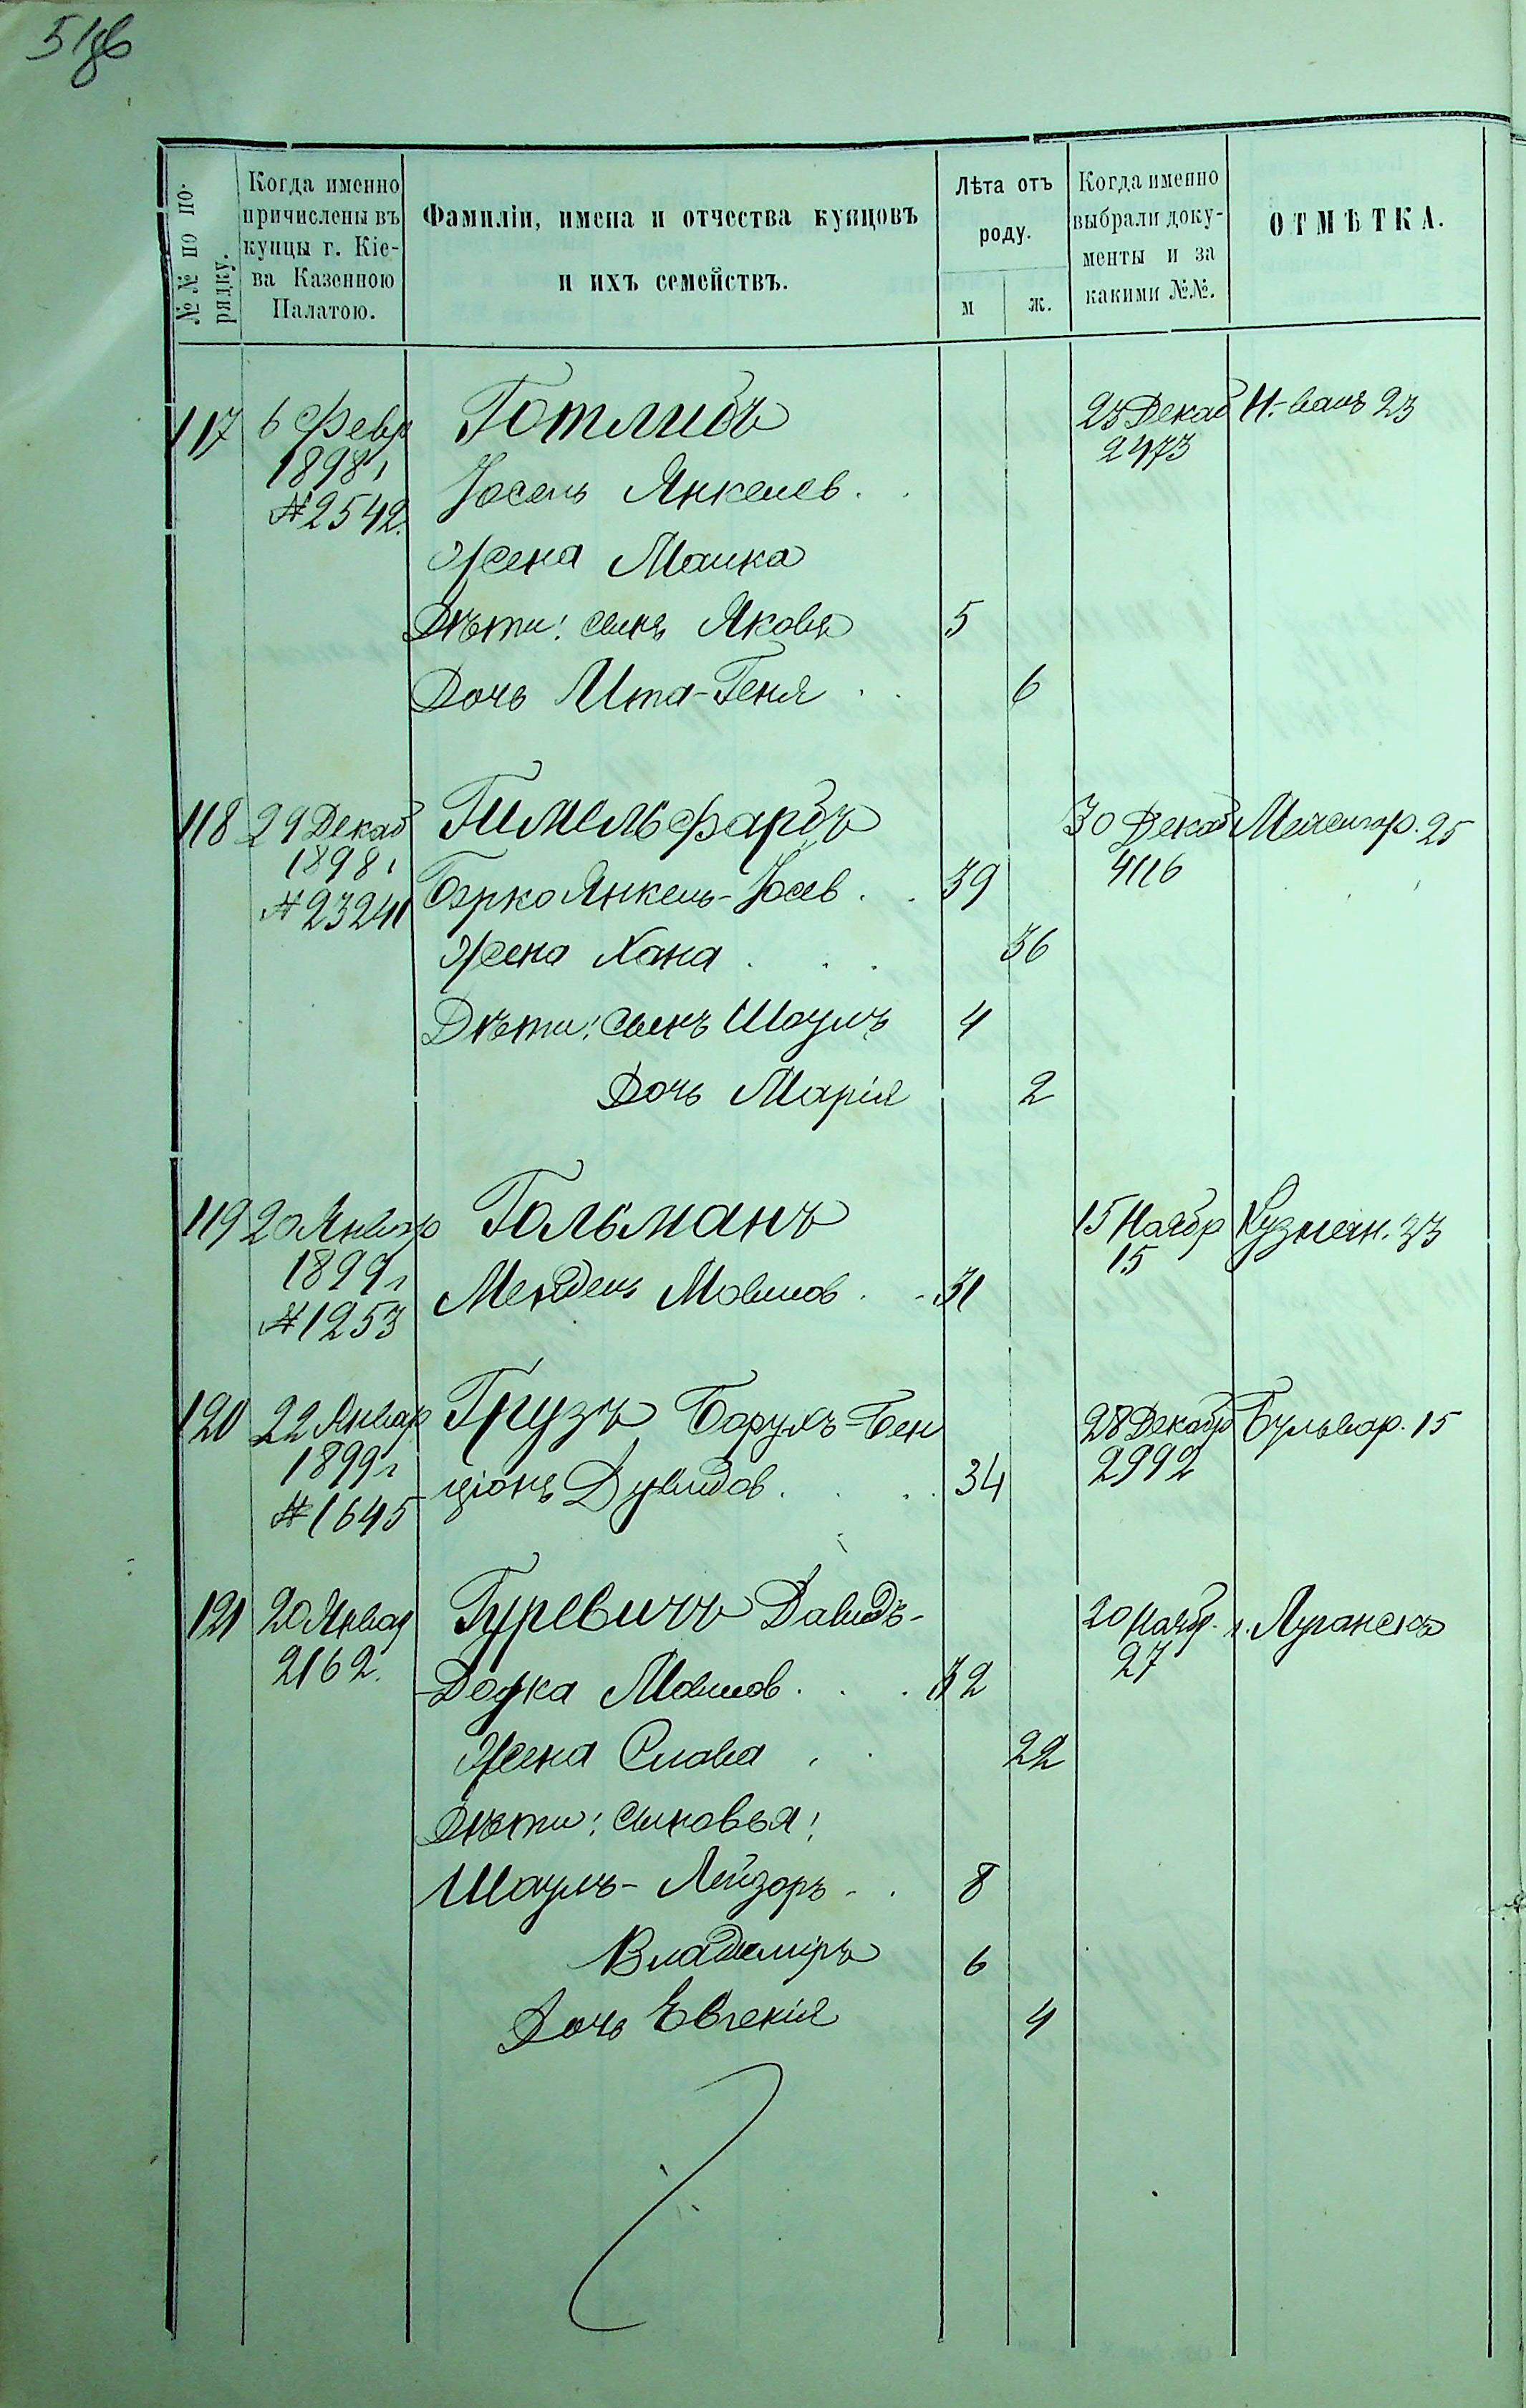 51об
№№ по по-
рядку.
Когда именно
причислены въ
купцы г. Кіе-
ва Казенною
Палатою.
Фамиліи, имена и отчества купцовъ
и ихъ семействъ.
Лѣта отъ
роду.
м ж.
Когда именно
выбрали доку-
менты и за
какими №№.
ОТМѢТКА.
117 6 Февр Готлибъ 23 Декаб Н.-валъ 23
1898г 2473
Іосель Янкелев.
№2542.
Жена Малка
Дѣти: сынъ Яковъ 5
Дочь Ита-Геня 6
118 29 Декаб Гимельфарбъ 30 Декаб Межигор. 25
1898г 4116
№23241 Борко Янкель-Іосев. 39
Жена Хана 36
Дѣти: сынъ Шоулъ 4
Дочь Марія 2
119 20 Январ Гольманъ 15 Ноябр Кузнечн. 33
1899г 15
Мендель Мовшов. 31
№1253
120 22 Январ Грузъ Борухъ-Бен 28 Декабр Бульвар. 15
1899г ціонъ Дувидов. 34 2992
№1645
121 20 Январ Гуревичъ Давидъ- 20 Ноябр. г. Луганскъ
2162. Додка Мовшов. 32 27
Жена Слава 22
Дѣти: сыновья:
Шаулъ-Лейзоръ 8
Владиміръ 6
Дочь Евгенія 4